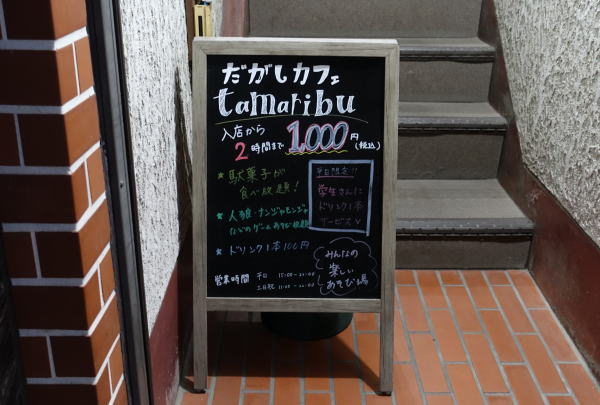 だがしカフェ
tamaribu
入店から
2時間まで 1,000円(税込)
★ 駄菓子が
食べ放題!
★ 人狼・ナンジャモンジャ
などのゲームあそび放題
★ ドリンク1本100円
平日限定!!
学生さんに
ドリンク1本
サービス
営業時間 平日 15:00-22:00
土日祝 11:00-22:00
みんなの
楽しい
あそび場